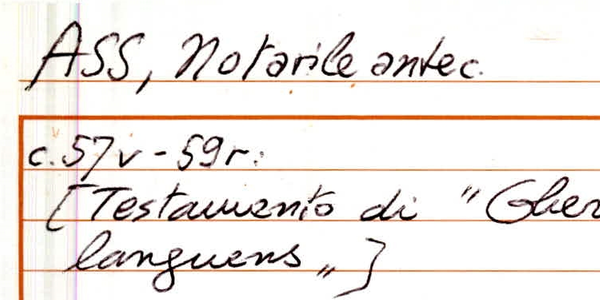 ASS, Notarile antec.
c. 57v - 59r:
[Testamento di "Gher
languens"]